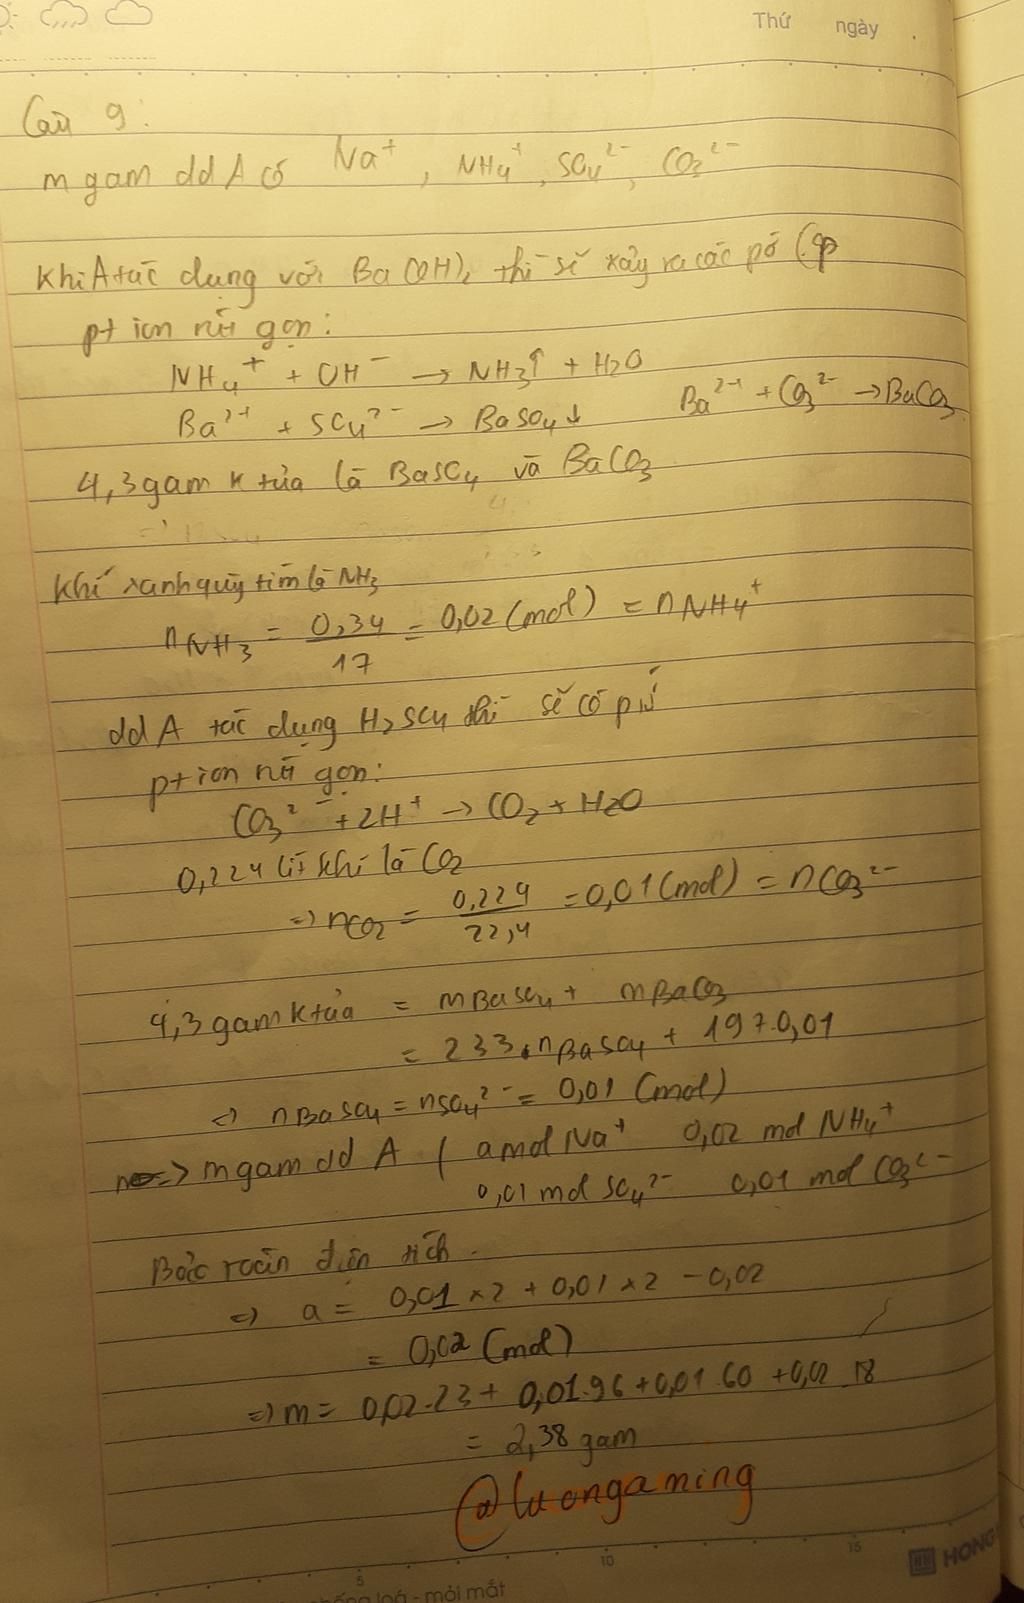 Thứ ngày .
Câu 9:
m gam dd A có Na⁺, NH₄⁺, SO₄²⁻, CO₃²⁻
Khi A tác dụng với Ba(OH)₂ thì sẽ xảy ra các pứ
pt ion rút gọn:
NH₄⁺ + OH⁻ → NH₃↑ + H₂O
Ba²⁺ + SO₄²⁻ → BaSO₄↓ Ba²⁺ + CO₃²⁻ → BaCO₃
4,3gam k tủa là BaSO₄ và BaCO₃
Khí xanh quỳ tím là NH₃
nNH₃ = 0,34/17 = 0,02 (mol) = nNH₄⁺
dd A tác dụng H₂SO₄ thì sẽ có pứ
pt ion rút gọn:
CO₃²⁻ + 2H⁺ → CO₂ + H₂O
0,224 lít khí là CO₂
=> nCO₂ = 0,224/22,4 = 0,01 (mol) = nCO₃²⁻
4,3 gam k tủa = mBaSO₄ + mBaCO₃
= 233.nBaSO₄ + 197.0,01
=> nBaSO₄ = nSO₄²⁻ = 0,01 (mol)
=> m gam dd A ( a mol Na⁺ 0,02 mol NH₄⁺
0,01 mol SO₄²⁻ 0,01 mol CO₃²⁻
Bảo toàn điện tích.
=> a = 0,01 × 2 + 0,01 × 2 - 0,02
= 0,02 (mol)
=> m = 0,02.23 + 0,01.96 + 0,01.60 + 0,02.18
= 2,38 gam
@luongaming
5 10 15
HONG
chống loá - mỏi mắt